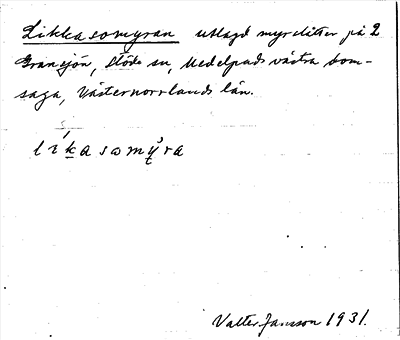 Likkasomyran utlagd myrslåtter på 2
Gransjön, Stöde sn, Medelpads västra dom-
saga, Västernorrlands län.
líkasomy̆ra
Valter Jansson 1931.